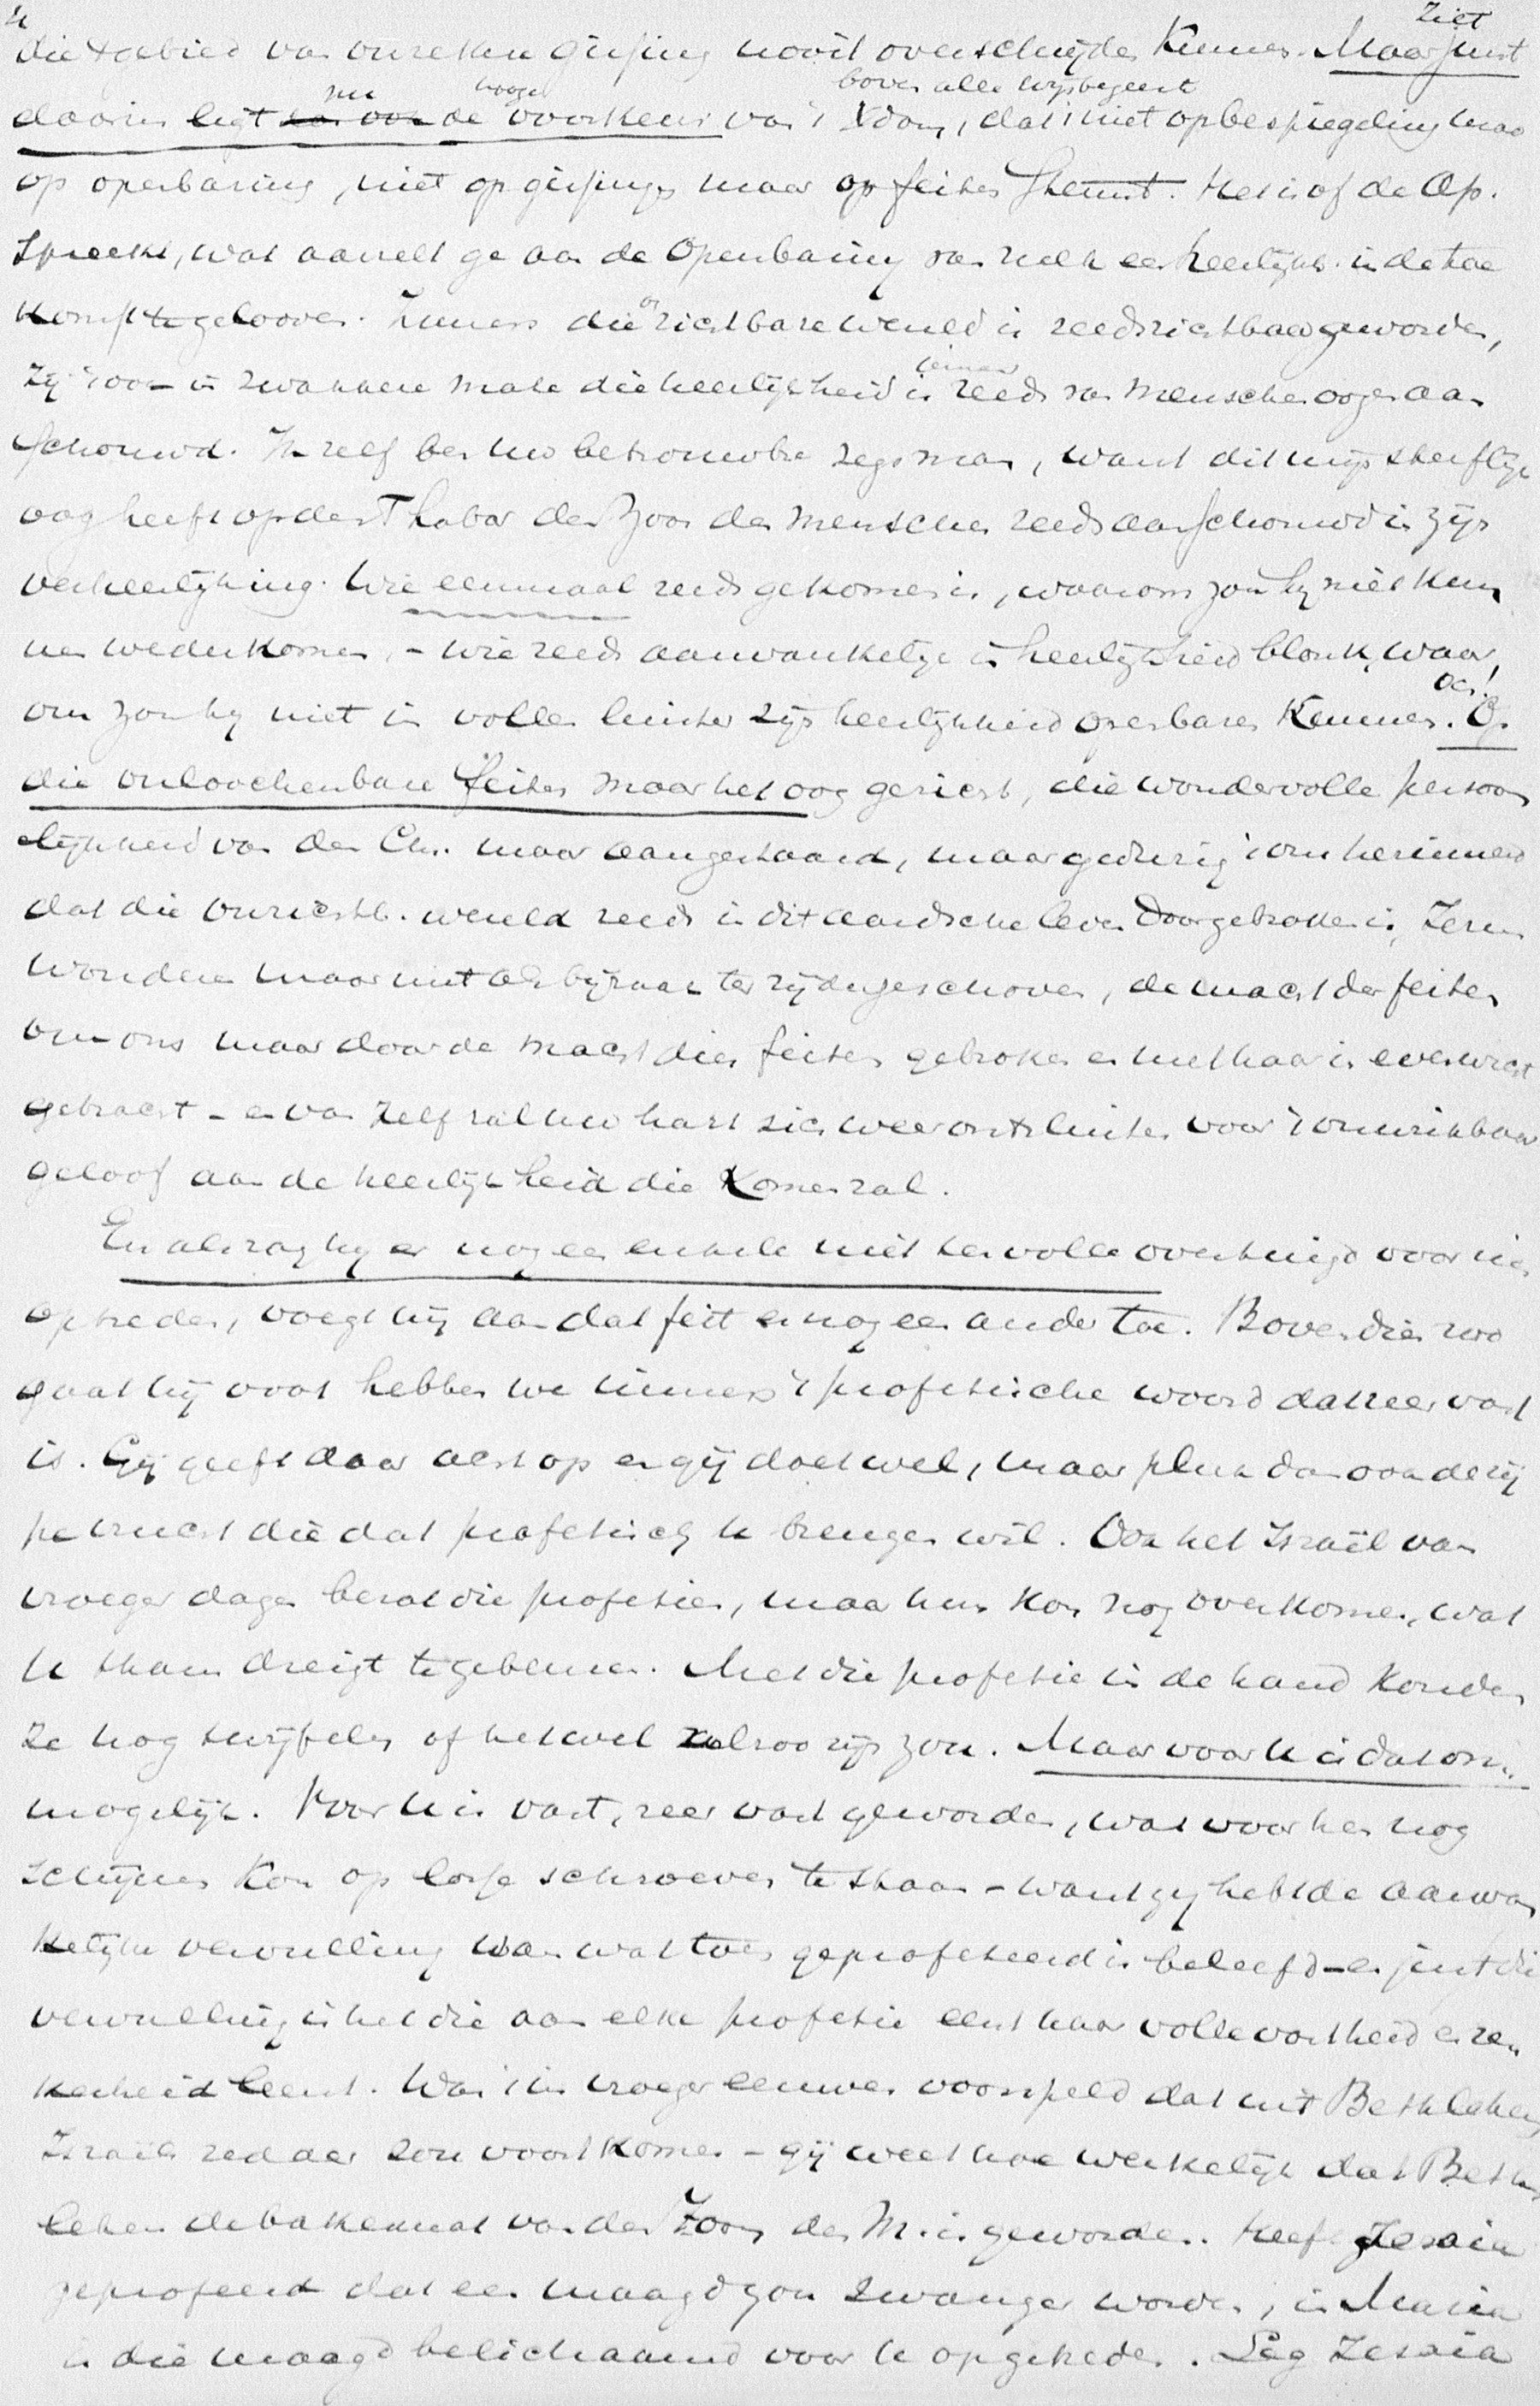 4
die 't gebied van onzekere gissing nooit overschrijden kunnen. Ziet Maar juist
daarin ligt nu de hooge voorkeur van 't Xdom, boven alle wijsbegeert dat 't niet op bespiegeling maar
op openbaring, niet op gissingen maar op feiten steunt. Het is of de Ap.
spreekt, wat aarzelt ge aan de Openbaring van zulk een heerlijkh. in de toe
komst te gelooven. Immers die onzichtbare wereld is reeds zichtbaar geworden,
zij 't ook in zwakkere mate die heerlijkheid is immers reeds van menschenoogen aan
schouwd. Ik zelf ben uw betrouwbre zegsman, want dit mijn sterflijk
oog heeft op den Thabor den Zoon des menschen reeds aanschouwd in zijn
verheerlijking. Wie eenmaal reeds gekomen is, waarom zou hij niet kun
nen wederkomen, - wie reeds aanvankelijk in heerlijkheid blonk, waar
om zou hij niet in vollen luister zijn heerlijkheid openbaren kunnen. och! Op
die onloochenbare feiten maar het oog gericht, die wondervolle persoon
lijkheid van den Chr. maar aangestaard, maar gedurig 't om herinnerd
dat die onzichtb. wereld reeds in dit aardsche leven doorgebroken is, Jezus
wonderen maar niet als bijzaak ter zijde geschoven, de macht der feiten
om ons maar door de macht dier feiten gebroken en met haar in evenwicht
gebracht - en van zelf zal uw hart zich weer ontsluiten voor 't onwrikbaar
geloof aan de heerlijkheid die komen zal.
En als zag hij er nog een enkele niet ten volle overtuigd voor zich
optreden, voegt hij aan dat feit er nog een ander toe. Bovendien zoo
gaat hij voort hebben we immers 't profetische woord dat zeer vast
is. Gij geeft daar acht op en gij doet wel, maar pluk dan ook de rij
pe vrucht die dat profetisch u brengen wil. Ook het Israël van
vroeger dagen bezat die profetien, maar hun kon nog overkomen, wat
u thans dreigt te gebeuren. Met die profetie in de hand konden
ze nog twijfelen of het wel alzoo zijn zou. Maar voor u is dat on
mogelijk. Voor u is vast, zeer vast geworden, wat voor hen nog
schijnen kon op losse schroeven te staan - want gij hebt de aanvan
kelijke vervulling van wat toen geprofeteerd is beleefd - en juist die
vervulling is het die aan elke profetie eerst haar volle vastheid en ze
kerheid leent. Was 't in vroeger eeuwen voorspeld dat uit Bethlehem
Israels redder zou voortkomen - gij weet hoe werkelijk dat Beth
lehem de bakermat van den Zoon des M. is geworden. Heeft Jesaia
geprofeerd dat een maagd zou zwanger worden, in Maria
is die maagd belichaamd voor u opgetreden. Zag Jesaia